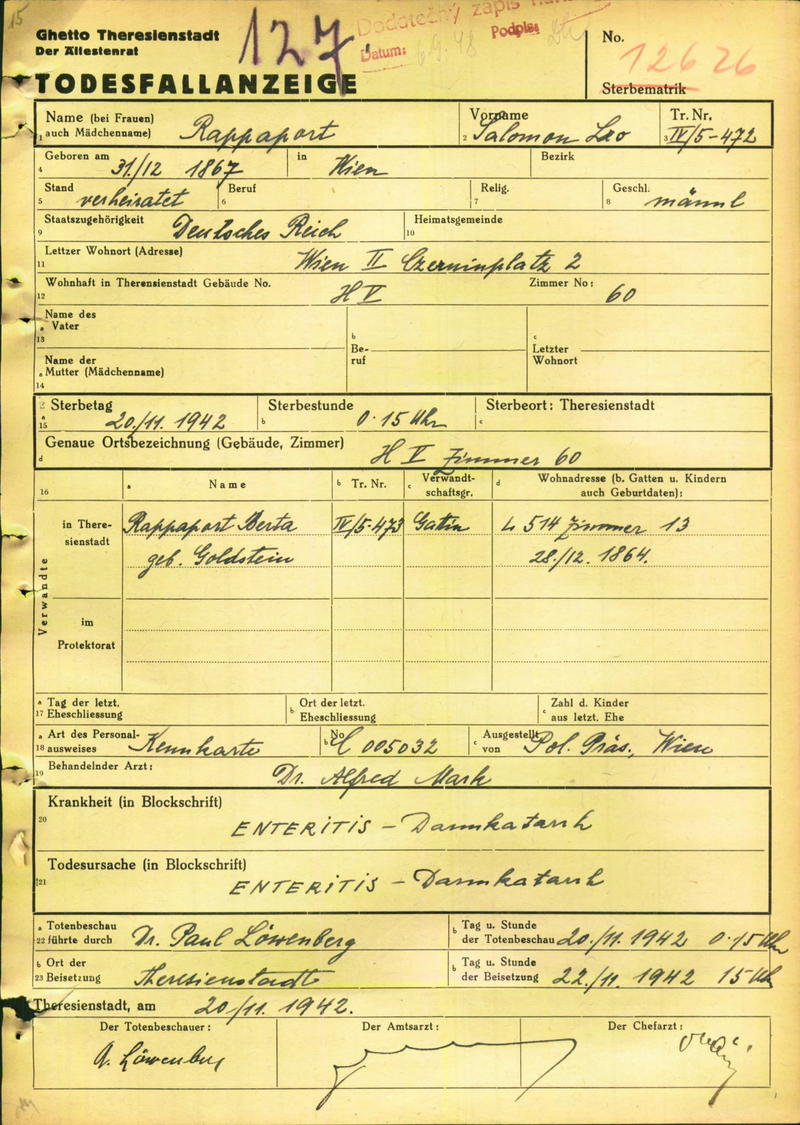 15
Ghetto Theresienstadt
Der Ältestenrat
127
Dodatečný zápis
Datum: 6.9.48 Podpis:
No.
12626
Sterbematrik
TODESFALLANZEIGE
Name (bei Frauen) Vorname Tr. Nr.
1 auch Mädchenname) Rappaport 2 Salomon Leo 3 IV/5-472
Geboren am in Bezirk
4 31./12 1867 Wien
Stand Beruf Relig. Geschl.
5 verheiratet 6 7 8 männl
Staatszugehörigkeit Deutsches Reich Heimatsgemeinde
9 10
Lettzer Wohnort (Adresse)
11 Wien II Czerninplatz 2
Wohnhaft in Therensienstadt Gebäude No. Zimmer No:
12 H V 60
Name des
a Vater b c
13 Be- Letzter
Name der ruf Wohnort
a Mutter (Mädchenname)
14
Sterbetag Sterbestunde Sterbeort: Theresienstadt
a 15 20./11. 1942 b 0.15 Uhr c
Genaue Ortsbezeichnung (Gebäude, Zimmer)
d H V Zimmer 60
16 a Name b Tr. Nr. c Verwandt-schaftsgr. d Wohnadresse (b. Gatten u. Kindern
auch Geburtdaten):
Verwandte
in There-sienstadt Rappaport Berta IV/5-473 Gatin L 514 Zimmer 13
geb. Goldstein 28./12. 1864.
im
Protektorat
a Tag der letzt. b Ort der letzt. c Zahl d. Kinder
17 Eheschliessung Eheschliessung aus letzt. Ehe
a Art des Personal- b No c Ausgestellt
18 ausweises Kennkarte C 005032 von Pol. Präs., Wien
Behandelnder Arzt:
19 Dr. Alfred Mark
Krankheit (in Blockschrift)
20 ENTERITIS – Darmkatarrh
Todesursache (in Blockschrift)
21 ENTERITIS – Darmkatarrh
a Totenbeschau b Tag u. Stunde
22 führte durch Dr. Paul Löwenberg der Totenbeschau 20./11. 1942 0.15 Uhr
b Ort der b Tag u. Stunde
23 Beisetzung Theresienstadt der Beisetzung 22./11. 1942 15 Uhr
Theresienstadt, am 20/11. 1942.
Der Totenbeschauer: Der Amtsarzt: Der Chefarzt:
Löwenberg